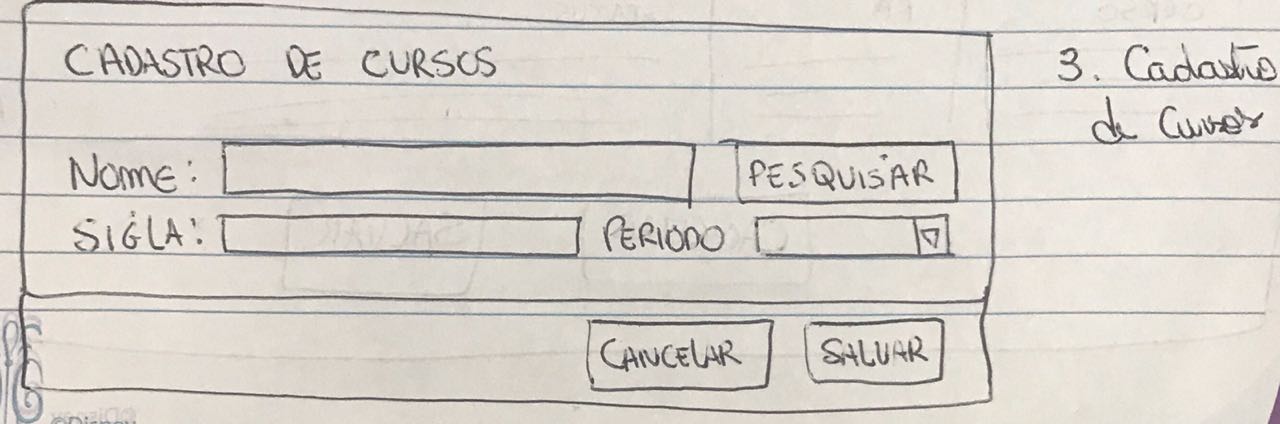 CADASTRO DE CURSOS
NOME: PESQUISAR
SIGLA: PERIODO
CANCELAR SALVAR
3. Cadastro
de Cursos
©Disney